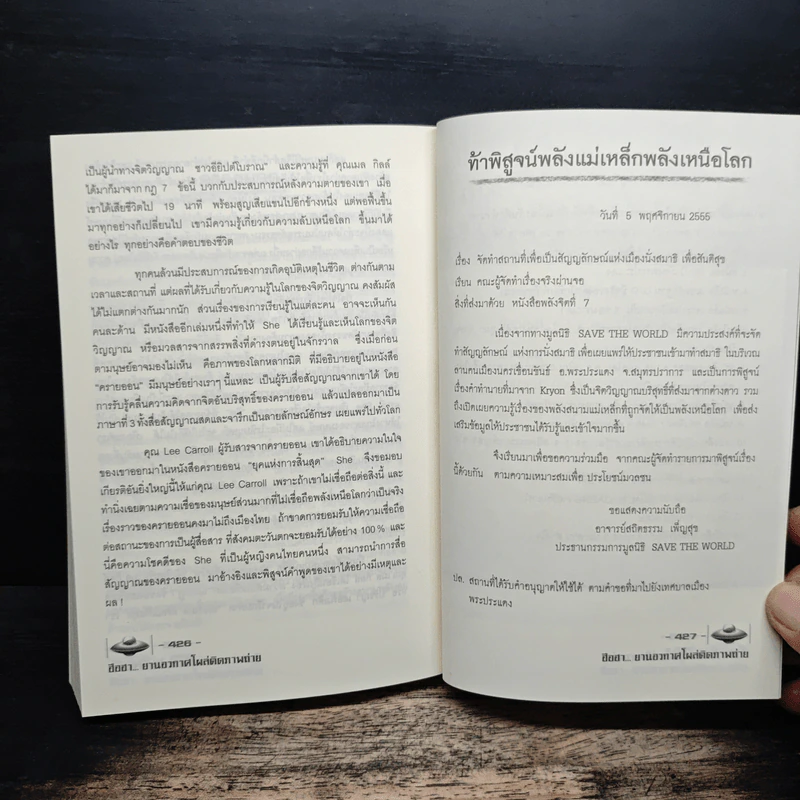 เป็นผู้นำทางจิตวิญญาณ ชาวอียิปต์โบราณ" และความรู้ที่ คุณเมล กิลล์
ได้มาก็มาจากกฎ 7 ข้อนี้ บวกกับประสบการณ์หลังความตายของเขา เมื่อ
เขาได้เสียชีวิตไป 19 นาที พร้อมสูญเสียแขนไปอีกข้างหนึ่ง แต่พอฟื้นขึ้น
มาทุกอย่างก็เปลี่ยนไป เขามีความรู้เกี่ยวกับความลับเหนือโลก ขึ้นมาได้
อย่างไร ทุกอย่างคือคำตอบของชีวิต
ทุกคนล้วนมีประสบการณ์ของการเกิดอุบัติเหตุในชีวิต ต่างกันตาม
เวลาและสถานที่ แต่ผลที่ได้รับเกี่ยวกับความรู้ในโลกของจิตวิญญาณ คงสัมผัส
ได้ไม่แตกต่างกันมากนัก ส่วนเรื่องของการเรียนรู้ในแต่ละคน อาจจะเห็นกัน
คนละด้าน มีหนังสืออีกเล่มหนึ่งที่ทำให้ She ได้เรียนรู้และเห็นโลกของจิต
วิญญาณ หรือมวลสารจากสรรพสิ่งที่ดำรงตนอยู่ในจักรวาล ซึ่งเมื่อก่อน
ตามนุษย์อาจมองไม่เห็น คือภาพของโลกหลากมิติ ที่มีอธิบายอยู่ในหนังสือ
"ครายออน" มีมนุษย์อย่างเราๆ นี้แหละ เป็นผู้รับสื่อสัญญาณจากเขาได้ โดย
การรับรู้คลื่นความคิดจากจิตอันบริสุทธิ์ของครายออน แล้วแปลออกมาเป็น
ภาษาที่ 3 ทั้งสื่อสัญญาณสดและจารึกเป็นลายลักษณ์อักษร เผยแพร่ไปทั่วโลก
คุณ Lee Carroll ผู้รับสารจากครายออน เขาได้อธิบายความในใจ
ของเขาออกมาในหนังสือครายออน "ยุคแห่งการสิ้นสุด" She จึงขอมอบ
เกียรติอันยิ่งใหญ่นี้ให้แก่คุณ Lee Carroll เพราะถ้าเขาไม่เชื่อถือต่อสิ่งนี้ และ
ทำนิ่งเฉยตามความเชื่อของมนุษย์ส่วนมากที่ไม่เชื่อถือพลังเหนือโลกว่าเป็นจริง
เรื่องราวของครายออนคงมาไม่ถึงเมืองไทย ถ้าขาดการยอมรับให้ความเชื่อถือ
ต่อสถานะของการเป็นผู้สื่อสาร ที่สังคมตะวันตกจะยอมรับได้อย่าง 100 % และ
นี้คือความโชคดีของ She ที่เป็นผู้หญิงคนไทยคนหนึ่ง สามารถนำการสื่อ
สัญญาณของครายออน มาอ้างอิงและพิสูจน์คำพูดของเขาได้อย่างมีเหตุและ
ผล !
- 426 -
ฮือฮา... ยานอวกาศโผล่ติดภาพถ่าย
ท้าพิสูจน์พลังแม่เหล็กพลังเหนือโลก
วันที่ 5 พฤศจิกายน 2555
เรื่อง จัดทำสถานที่เพื่อเป็นสัญญลักษณ์แห่งเมืองนั่งสมาธิ เพื่อสันติสุข
เรียน คณะผู้จัดทำเรื่องจริงผ่านจอ
สิ่งที่ส่งมาด้วย หนังสือพลังจิตที่ 7
เนื่องจากทางมูลนิธิ SAVE THE WORLD มีความประสงค์ที่จะจัด
ทำสัญญลักษณ์ แห่งการนั่งสมาธิ เพื่อเผยแพร่ให้ประชาชนเข้ามาทำสมาธิ ในบริเวณ
ลานคนเมืองนครเขื่อนขันธ์ อ.พระประแดง จ.สมุทรปราการ และเป็นการพิสูจน์
เรื่องคำทำนายที่มาจาก Kryon ซึ่งเป็นจิตวิญญาณบริสุทธิ์ที่ส่งมาจากต่างดาว รวม
ถึงเปิดเผยความรู้เรื่องของพลังสนามแม่เหล็กที่ถูกจัดให้เป็นพลังเหนือโลก เพื่อส่ง
เสริมข้อมูลให้ประชาชนได้รับรู้และเข้าใจมากขึ้น
จึงเรียนมาเพื่อขอความร่วมมือ จากคณะผู้จัดทำรายการมาพิสูจน์เรื่อง
นี้ด้วยกัน ตามความเหมาะสมเพื่อ ประโยชน์มวลชน
ขอแสดงความนับถือ
อาจารย์สถิตธรรม เพ็ญสุข
ประธานกรรมการมูลนิธิ SAVE THE WORLD
ปล. สถานที่ได้รับคำอนุญาตให้ใช้ได้ ตามคำขอที่มาไปยังเทศบาลเมือง
พระประแดง
- 427 -
ฮือฮา... ยานอวกาศโผล่ติดภาพถ่าย